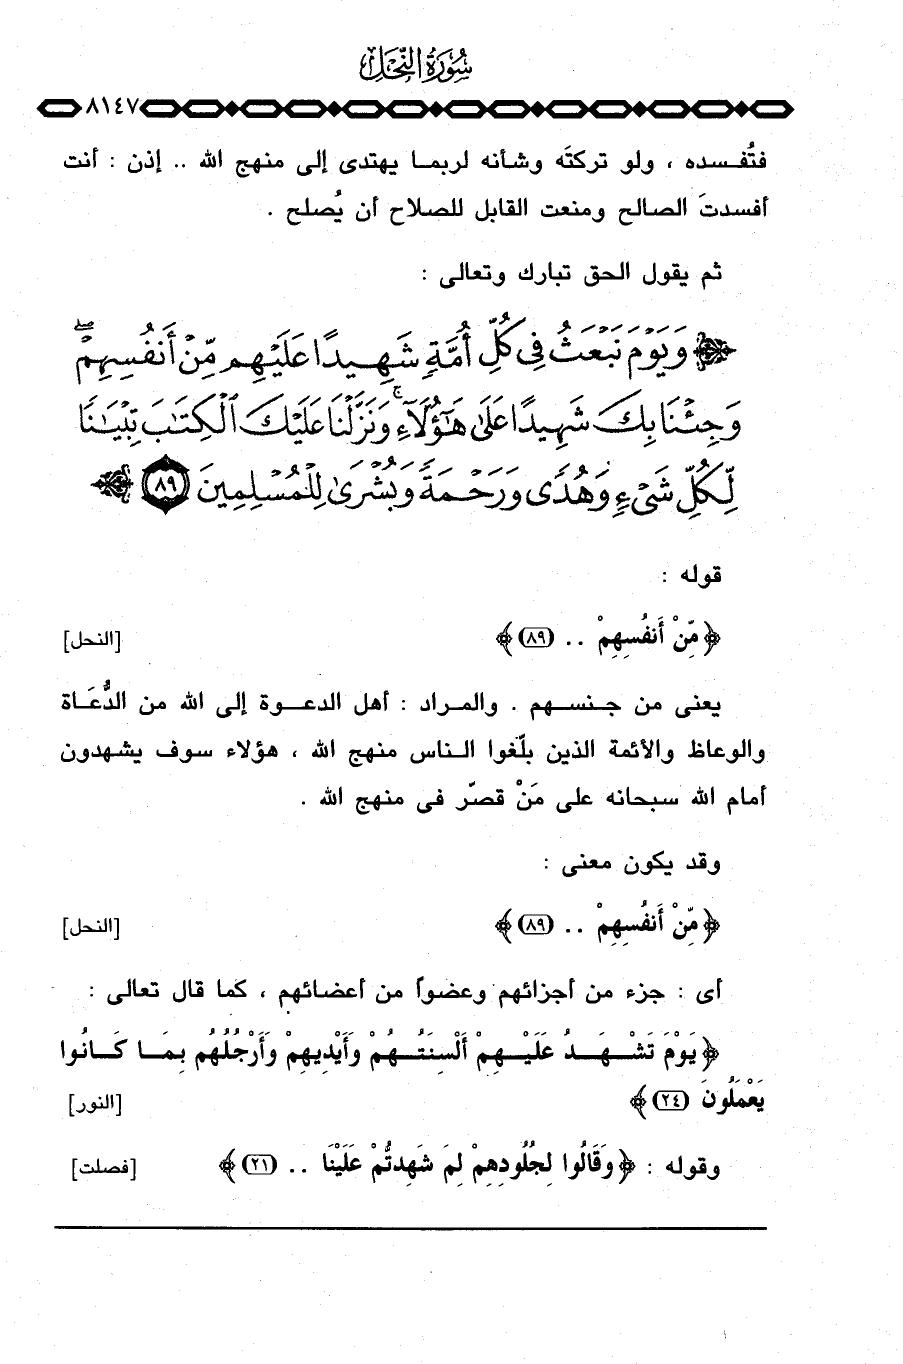 سُورَةُ النَّحْلِ
٨١٤٧
فتُفسده ، ولو تركتَه وشأنه لربما يهتدى إلى منهج الله .. إذن : أنت
أفسدتَ الصالح ومنعت القابل للصلاح أن يُصلح .
ثم يقول الحق تبارك وتعالى :
﴿ وَيَوْمَ نَبْعَثُ فِى كُلِّ أُمَّةٍ شَهِيدًا عَلَيْهِم مِّنْ أَنفُسِهِمْ ۖ
وَجِئْنَا بِكَ شَهِيدًا عَلَىٰ هَٰٓؤُلَآءِ ۚ وَنَزَّلْنَا عَلَيْكَ ٱلْكِتَٰبَ تِبْيَٰنًا
لِّكُلِّ شَىْءٍ وَهُدًى وَرَحْمَةً وَبُشْرَىٰ لِلْمُسْلِمِينَ ٨٩ ﴾
قوله :
﴿ مِّنْ أَنفُسِهِمْ .. (٨٩) ﴾ [النحل]
يعنى من جنسهم . والمراد : أهل الدعوة إلى الله من الدُّعَاة
والوعاظ والأئمة الذين بلّغوا الناس منهج الله ، هؤلاء سوف يشهدون
أمام الله سبحانه على مَنْ قصّر فى منهج الله .
وقد يكون معنى :
﴿ مِّنْ أَنفُسِهِمْ .. (٨٩) ﴾ [النحل]
أى : جزء من أجزائهم وعضواً من أعضائهم ، كما قال تعالى :
﴿ يَوْمَ تَشْهَدُ عَلَيْهِمْ أَلْسِنَتُهُمْ وَأَيْدِيهِمْ وَأَرْجُلُهُم بِمَا كَانُوا
يَعْمَلُونَ (٢٤) ﴾ [النور]
وقوله : ﴿ وَقَالُوا لِجُلُودِهِمْ لِمَ شَهِدتُّمْ عَلَيْنَا .. (٢١) ﴾ [فصلت]